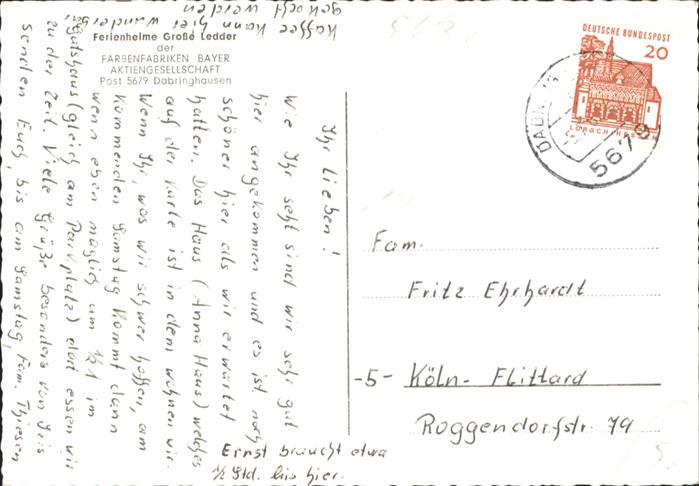 Ferienheime Große Ledder
der
FARBENFABRIKEN BAYER
AKTIENGESELLSCHAFT
Post 5679 Dabringhausen
Ihr Lieben!
Wie Ihr seht sind wir sehr gut
hier angekommen und es ist noch
schöner hier als wir erwartet
hatten. Das Haus (Anna Haus) welches
auf der Karte ist in dem wohnen wir.
Wenn Ihr, was wir schwer hoffen, am
kommenden Samstag kommt dann
wenn eben möglich um ½1 im
Gutshaus (gleich am Parkplatz) dort essen wir
zu der Zeit. Viele Grüße besonders von Iris
senden Euch, bis am Samstag, Fam. Thiesen
Kaffee kann hier wunderbar
gekocht werden
Ernst braucht etwa
½ Std. bis hier.
DEUTSCHE BUNDESPOST
20
LORSCH/HESSEN
5679
Fam.
Fritz Ehrhardt
-5- Köln-Flittard
Roggendorfstr. 79